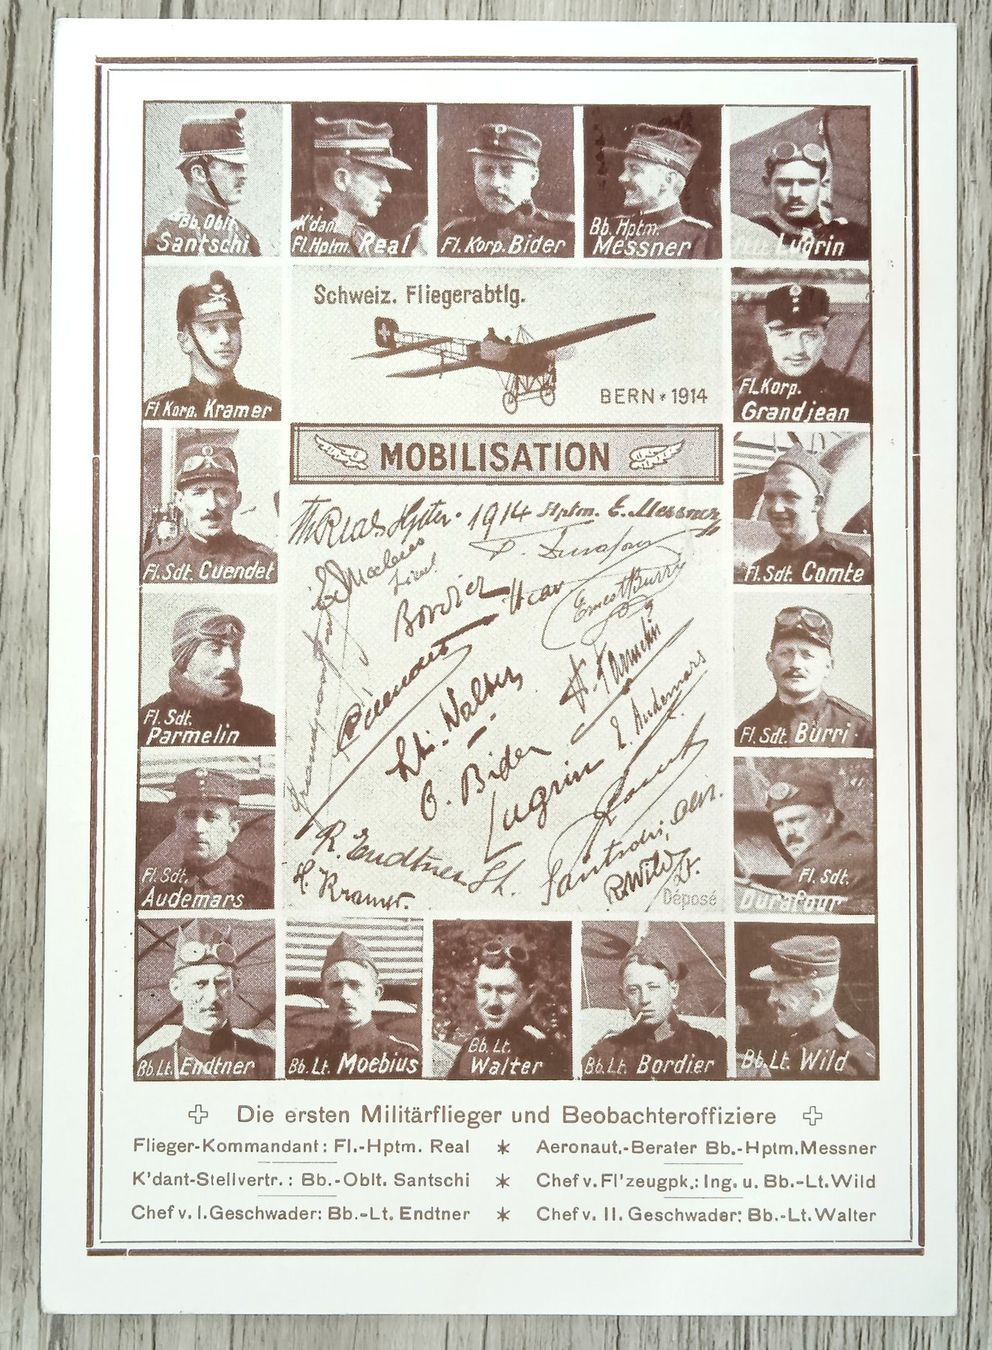 Bb. Oblt.
Santschi
K'dan
Fl. Hptm. Real
Fl. Korp. Bider
Bb. Hptm.
Messner
Lugrin
Schweiz. Fliegerabtlg.
BERN * 1914
Fl. Korp. Kramer
Fl. Korp.
Grandjean
MOBILISATION
Fl. Sdt. Cuendet
Fl. Sdt. Comte
Real Hptm. 1914 Hptm. E. Messner
Bordier
Ernest Burri
Cuendet
Lt. Walter
E. Audemars
O. Bider
Lugrin
R. Endtner Lt.
Santschi,
H. Kramer.
R. Wild Lt.
Déposé
Fl. Sdt.
Parmelin
Fl. Sdt. Burri
Fl. Sdt.
Audemars
Fl. Sdt.
Durafour
Bb. Lt. Endtner
Bb. Lt. Moebius
Bb. Lt.
Walter
Bb. Lt. Bordier
Bb. Lt. Wild
Die ersten Militärflieger und Beobachteroffiziere
Flieger-Kommandant: Fl.-Hptm. Real * Aeronaut.-Berater Bb.-Hptm. Messner
K'dant-Stellvertr.: Bb.-Oblt. Santschi * Chef v. Fl'zeugpk.: Ing. u. Bb.-Lt. Wild
Chef v. I. Geschwader: Bb.-Lt. Endtner * Chef v. II. Geschwader: Bb.-Lt. Walter